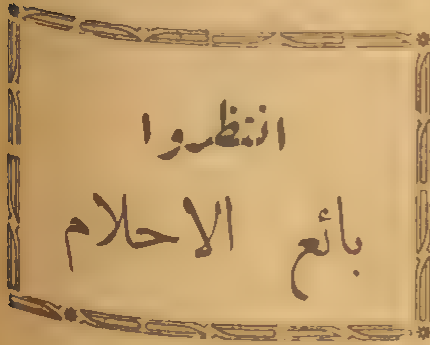 انتظروا
بائع الاحلام